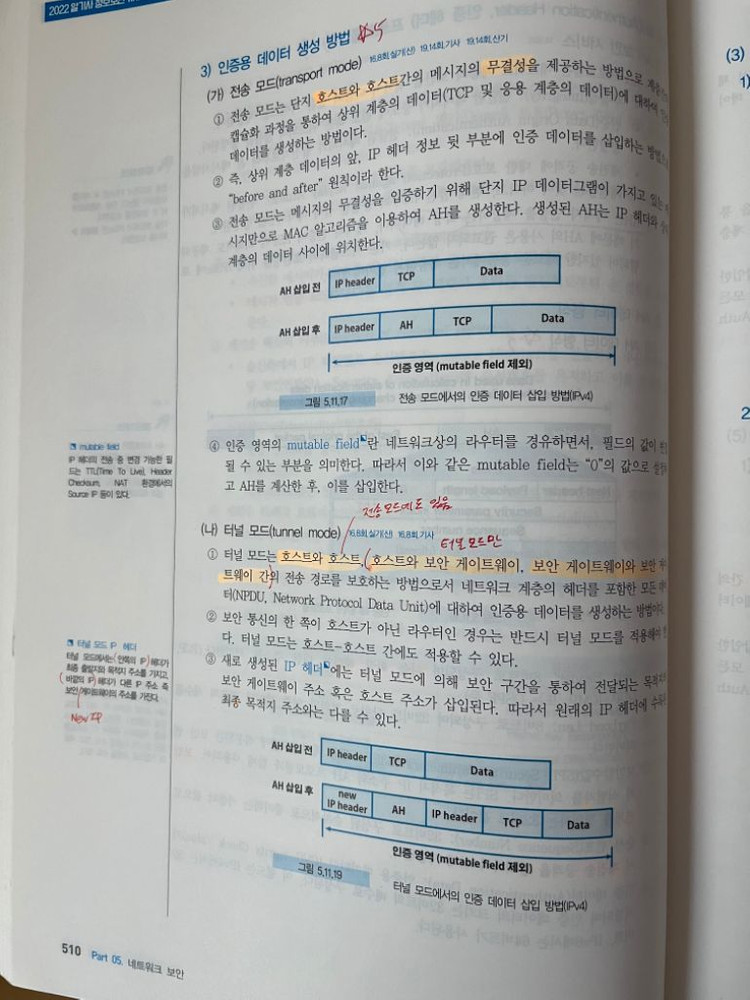 2022 알기사 정보보안
3) 인증용 데이터 생성 방법 16.8회.실기(산) 19.14회.기사 19.14회.산기
(가) 전송 모드(transport mode)
① 전송 모드는 단지 호스트와 호스트간의 메시지의 무결성을 제공하는 방법으로
캡슐화 과정을 통하여 상위 계층의 데이터(TCP 및 응용 계층의 데이터)에 대하여
데이터를 생성하는 방법이다.
② 즉, 상위 계층 데이터의 앞, IP 헤더 정보 뒷 부분에 인증 데이터를 삽입하는
"before and after" 원칙이라 한다.
③ 전송 모드는 메시지의 무결성을 입증하기 위해 단지 IP 데이터그램이 가지고 있는
시지만으로 MAC 알고리즘을 이용하여 AH를 생성한다. 생성된 AH는 IP 헤더와
계층의 데이터 사이에 위치한다.
AH 삽입 전 IP header TCP Data
AH 삽입 후 IP header AH TCP Data
인증 영역 (mutable field 제외)
그림 5.11.17 전송 모드에서의 인증 데이터 삽입 방법(IPv4)
④ 인증 영역의 mutable field란 네트워크상의 라우터를 경유하면서, 필드의 값이
될 수 있는 부분을 의미한다. 따라서 이와 같은 mutable field는 "0"의 값으로
고 AH를 계산한 후, 이를 삽입한다.
mutable field
IP 헤더의 전송 중 변경 가능한 필
드는 TTL(Time To Live), Header
Checksum, NAT 환경에서의
Source IP 등이 있다.
전송모드에도 있음
(나) 터널 모드(tunnel mode) 16.8회.실기(산) 16.8회.기사
터널모드만
① 터널 모드는 호스트와 호스트, 호스트와 보안 게이트웨이, 보안 게이트웨이와 보안
트웨이 간의 전송 경로를 보호하는 방법으로서 네트워크 계층의 헤더를 포함한 모든
터(NPDU, Network Protocol Data Unit)에 대하여 인증용 데이터를 생성하는 방법이다
② 보안 통신의 한 쪽이 호스트가 아닌 라우터인 경우는 반드시 터널 모드를 적용해야
다. 터널 모드는 호스트-호스트 간에도 적용할 수 있다.
③ 새로 생성된 IP 헤더에는 터널 모드에 의해 보안 구간을 통하여 전달되는 목적지
보안 게이트웨이 주소 혹은 호스트 주소가 삽입된다. 따라서 원래의 IP 헤더에
최종 목적지 주소와는 다를 수 있다.
터널 모드 IP 헤더
터널 모드에서는 (안쪽의 IP) 헤더가
최종 출발지와 목적지 주소를 가지고,
(바깥의 IP) 헤더가 다른 IP 주소 즉
보안 게이트웨이의 주소를 가진다.
New IP
AH 삽입 전 IP header TCP Data
AH 삽입 후 new IP header AH IP header TCP Data
인증 영역 (mutable field 제외)
그림 5.11.19 터널 모드에서의 인증 데이터 삽입 방법(IPv4)
510 Part 05. 네트워크 보안
(3)
1)
2